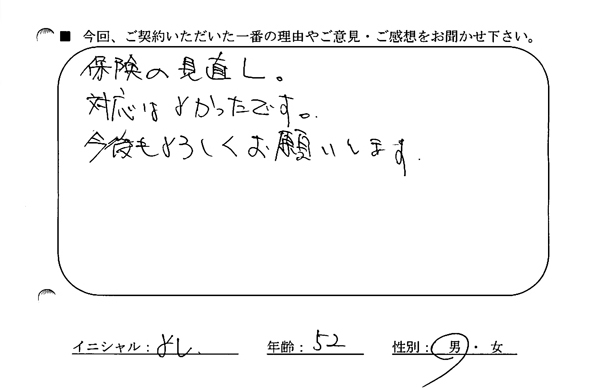 ■ 今回、ご契約いただいた一番の理由やご意見・ご感想をお聞かせ下さい。
保険の見直し。
対応はよかったです。
今後もよろしくお願いします.
イニシャル：よし. 年齢：52 性別：男・女